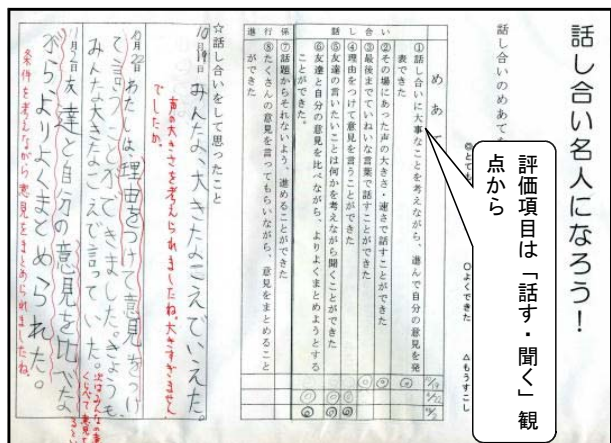 話し合い名人になろう！
話し合いのめあて
○よくできた　△もうすこし
評価項目は「話す・聞く」観
点から
めあ
話し合い
①話し合いに大事なことを考えながら、進んで自分の意見を発
表できた
②その場にあった声の大きさ・速さで話すことができた
③最後までていねいな言葉で話すことができた
④理由をつけて意見を言うことができた
⑤友達の言いたいことは何かを考えながら聞くことができた
⑥友達と自分の意見を比べながら、よりよくまとめようとする
ことができた。
進行係
⑦話題からそれないよう、進めることができた
⑧たくさんの意見を言ってもらいながら、意見をまとめること
ができた
☆話し合いをして思ったこと
10月19日
みんな、大きなこえでいえた。
声の大きさを考えられましたね。大きすぎません
でしたか。
10月22日
わたしは、理由をつけて意見をつけ
て言うことができました。きょうも、
みんな大きなこえで言っていた。
11月2日
友達と自分の意見を比べな
がら、よりよくまとめられた。
条件を考えながら意見をまとめられましたね。